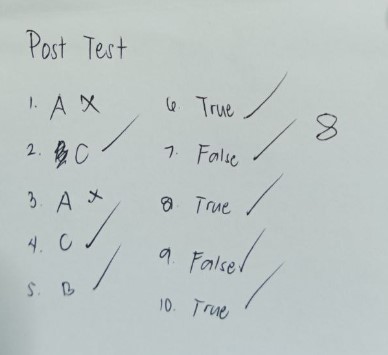 Post Test
1. A X
2. C ✓
3. A X
4. C ✓
5. B ✓
6. True ✓
7. False ✓
8. True ✓
9. False ✓
10. True ✓
8